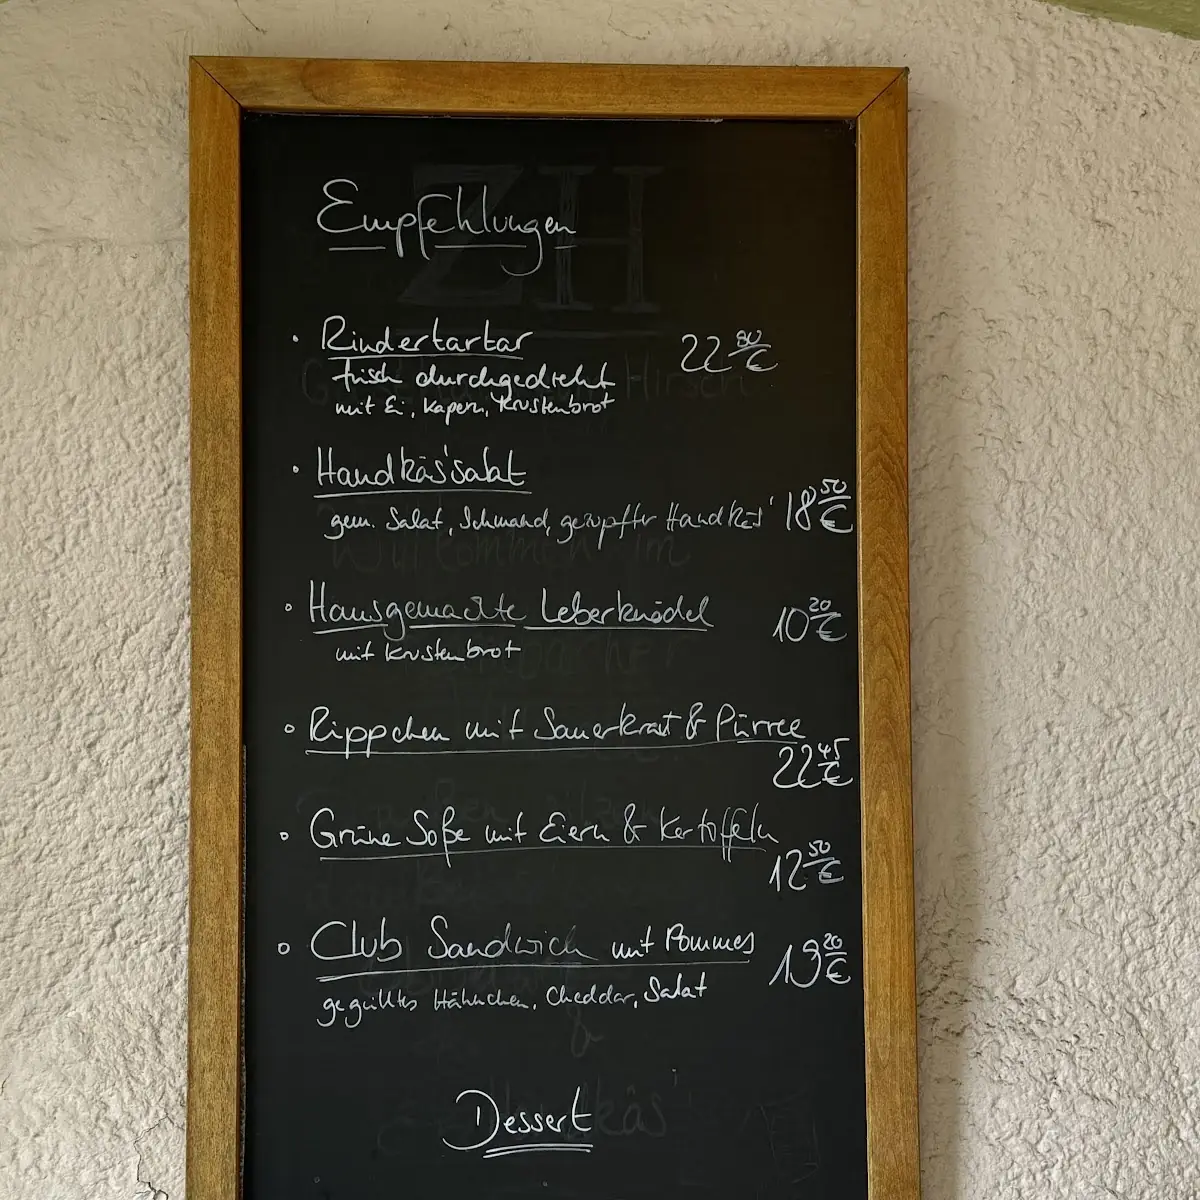 Empfehlungen
• Rindertartar 22 80 €
frisch durchgedreht
mit Ei, Kapern, Krustenbrot
• Handkäs'salat
gem. Salat, Schmand, gezupfter Handkäs' 18 50 €
• Hausgemachte Leberknödel 10 20 €
mit Krustenbrot
• Rippchen mit Sauerkraut & Pürree
22 45 €
• Grüne Soße mit Eiern & Kartoffeln
12 50 €
• Club Sandwich mit Pommes 19 20 €
gegrilltes Hähnchen, Cheddar, Salat
Dessert